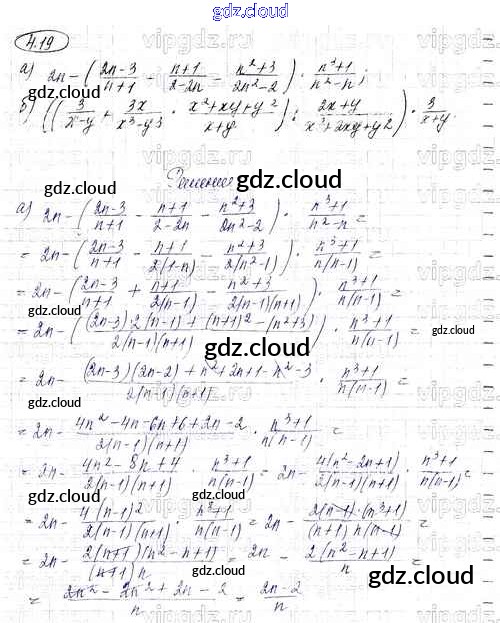 gdz.cloud
4.19
а) 2n - ( (2n-3)/(n+1) - (n+1)/(2-2n) - (n²+3)/(2n²-2) ) · (n³+1)/(n²-n);
б) ((3/(x-y) + 3x/(x³-y³) · (x²+xy+y²)/(x+y)) : (2x+y)/(x²+2xy+y²)) · 3/(x+y).
Решение
gdz.cloud
а) 2n - ( (2n-3)/(n+1) - (n+1)/(2-2n) - (n²+3)/(2n²-2) ) · (n³+1)/(n²-n) =
= 2n - ( (2n-3)/(n+1) - (n+1)/(2(1-n)) - (n²+3)/(2(n²-1)) ) · (n³+1)/(n(n-1)) =
= 2n - ( (2n-3)/(n+1) + (n+1)/(2(n-1)) - (n²+3)/(2(n-1)(n+1)) ) · (n³+1)/(n(n-1)) =
= 2n - ( ((2n-3)2(n-1) + (n+1)² - (n²+3))/(2(n-1)(n+1)) ) · (n³+1)/(n(n-1)) =
= 2n - ((2n-3)(2n-2) + n²+2n+1-n²-3)/(2(n-1)(n+1)) · (n³+1)/(n(n-1)) =
= 2n - (4n²-4n-6n+6+2n-2)/(2(n-1)(n+1)) · (n³+1)/(n(n-1)) =
= 2n - (4n²-8n+4)/(2(n-1)(n+1)) · (n³+1)/(n(n-1)) = 2n - 4(n²-2n+1)/(2(n-1)(n+1)) · (n³+1)/(n(n-1)) =
= 2n - 4(n-1)²/(2(n-1)(n+1)) · (n³+1)/(n(n-1)) = 2n - 2(n-1)·(n³+1)/((n+1)n(n-1)) =
= 2n - 2(n+1)(n²-n+1)/((n+1)n) = 2n - 2(n²-n+1)/n =
= (2n²-2n²+2n-2)/n = (2n-2)/n